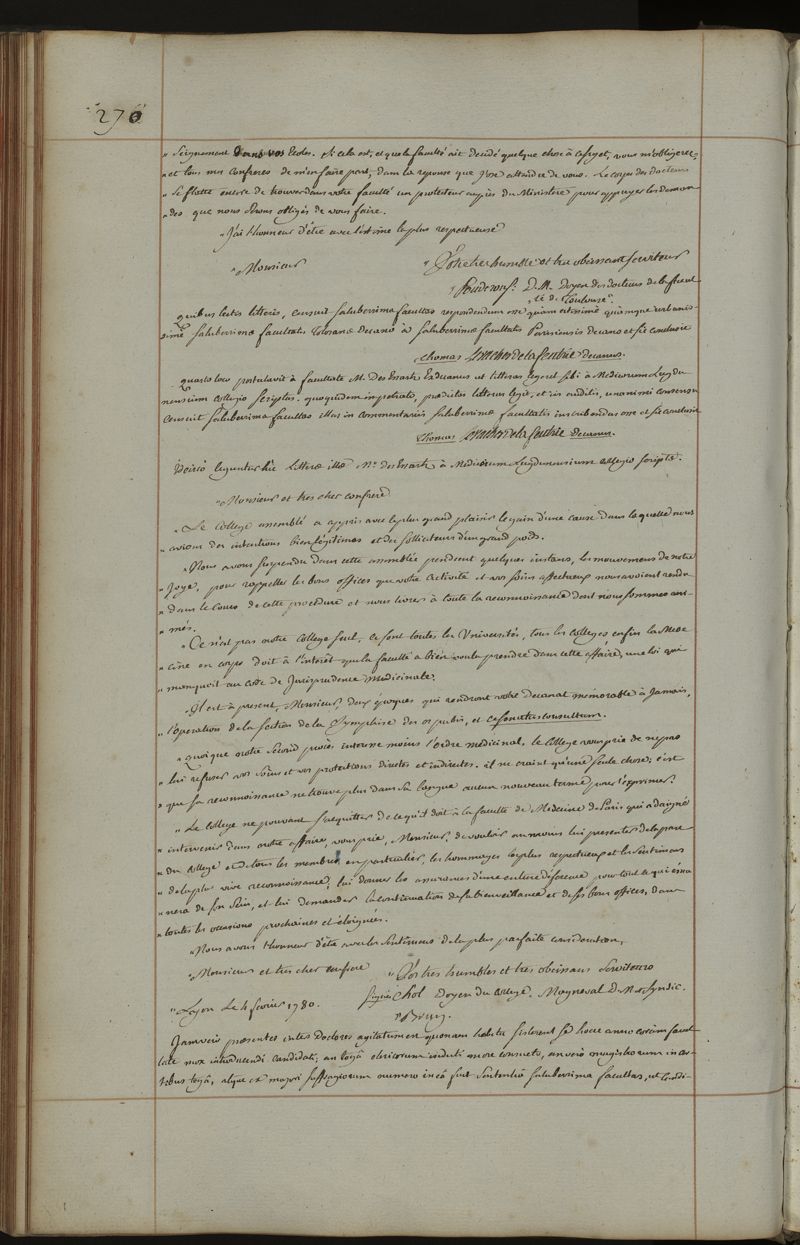 270
" seignement dans vos Ecoles. Si cela est, et que la faculté ait decidé quelque chose à ce sujet, vous m'obligerez
" et tous mes confreres de m'en faire part, dans la reponse que j'ose attendre de vous. Le corps des Docteurs
" se flatte encore de trouver dans votre faculté un protecteur auprès du Ministre pour appuyer les deman
" des que nous serons obligés de vous faire.
" J'ai l'honneur d'être avec l'estime la plus respectueuse
" Monsieur
" Votre tres humble et tres obeissant serviteur
D. M. Doyen des docteurs de la facul
" té de Toulouse".
Quibus lectis litteris, censuit saluberrima facultas respondendum esse quam citissimè quàmque urbanis-
simè saluberrimæ facultatis Tolosanæ decano à saluberrimæ facultatis Parisiensis decano et sic conclusit
Thomas Levacher de la feutrie Decanus.
Quarto loco postulavit à facultate M. Des Essartz Exdecanus ut litteras legeret sibi à Medicorum Lugdu
nensium collegio scriptas. quo quidem impetrato, prædictas litteras legit, et iis auditis, unanimi consensu
censuit saluberrima facultas illas in commentariis saluberrimæ facultatis inscribendas esse et sic conclusit
Thomas Levacher de la feutrie decanus.
Ideircò leguntur hîc Litteræ illæ Mo. des Essartz à Medicorum Lugdunensium collegio scriptæ.
" Monsieur et tres cher confrere
" Le College assemblé a appris avec le plus grand plaisir le gain d'une cause dans laquelle nous
" avions des intentions bien légitimes et des solliciteurs d'un grand poids.
" Nous avons suspendu dans cette assemblée pendant quelques instans, les mouvemens de notre
" Joye, pour rappeller les bons offices que votre activité et vos soins affectueux nous avoient rendu
" dans le cours de cette procedure et nous livrer à toute la reconnoissance dont nous sommes ani-
" més.
" Ce n'est pas notre College seul, ce sont toutes les Universités, tous les Colleges enfin la Mede
" cine en corps doit à l'interêt que la faculté a bien voulu prendre dans cette affaire, une loi qui
" manquoit au code de Jurisprudence Medicinale.
" Il est à present, Monsieur, deux époques qui rendront votre decanat memorable à Jamais,
" l'operation de la section de la Symphise des os pubis, et ce senatusconsultum.
" Quoique notre second procès interesse moins l'ordre medicinal, le College vous prie de ne pas
" lui refuser vos soins et vos protections directes et indirectes. il ne craint qu'une seule chose; c'est
" que sa reconnoissance ne trouve plus dans sa langue aucun nouveau terme pour l'exprimer.
" Le College ne pouvant s'acquitter de ce qu'il doit à la faculté de Medecine de Paris qui a daigné
" intervenir dans notre affaire, vous prie, Monsieur, de vouloir lui presenter de la part
" du College et de tous les membres en particulier, les hommages les plus respectueux et les sentimens
" de la plus vive reconnoissance, lui donner les assurances d'une entiere deference pour tout ce qui éma
" nera de son sein, et lui demander la continuation de sa bienveillance et de ses bons offices, dans
" toutes les occasions prochaines et éloignées.
" Nous avons l'honneur d'être avec les sentimens de la plus parfaite consideration,
" Monsieur et tres cher confrere
" Vos tres humbles et tres obeissans Serviteurs
" Lyon Le 4 fevrier 1780.
Signés Chol Doyen du College. Mayneval D. M. Syndic.
" Brun.
Jamverò præsentes inter Doctores agitatum est quonam habitu sisterent se hocce anno coràm facul
tate mox introducendi candidati, an togâ clericorum induti more consueto, an verò magistrorum in ar-
tibus togâ, atque ex majori suffragiorum numero in eâ fuit sententiâ saluberrima facultas, ut candi-